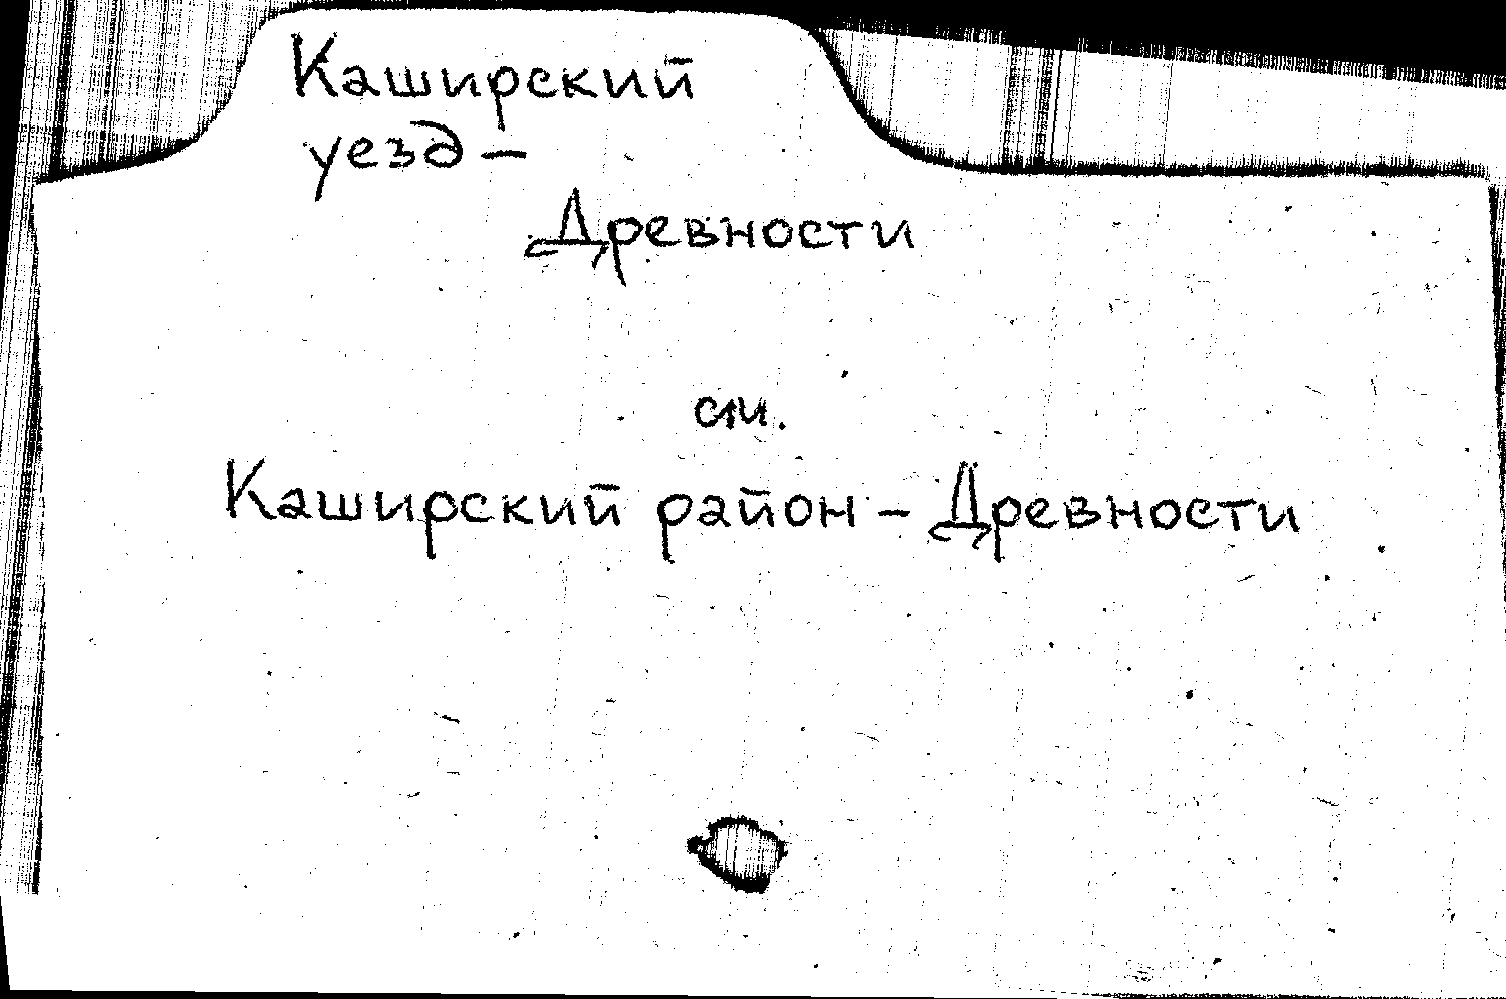 Каширский
уезд –
Древности
см.
Каширский район – Древности